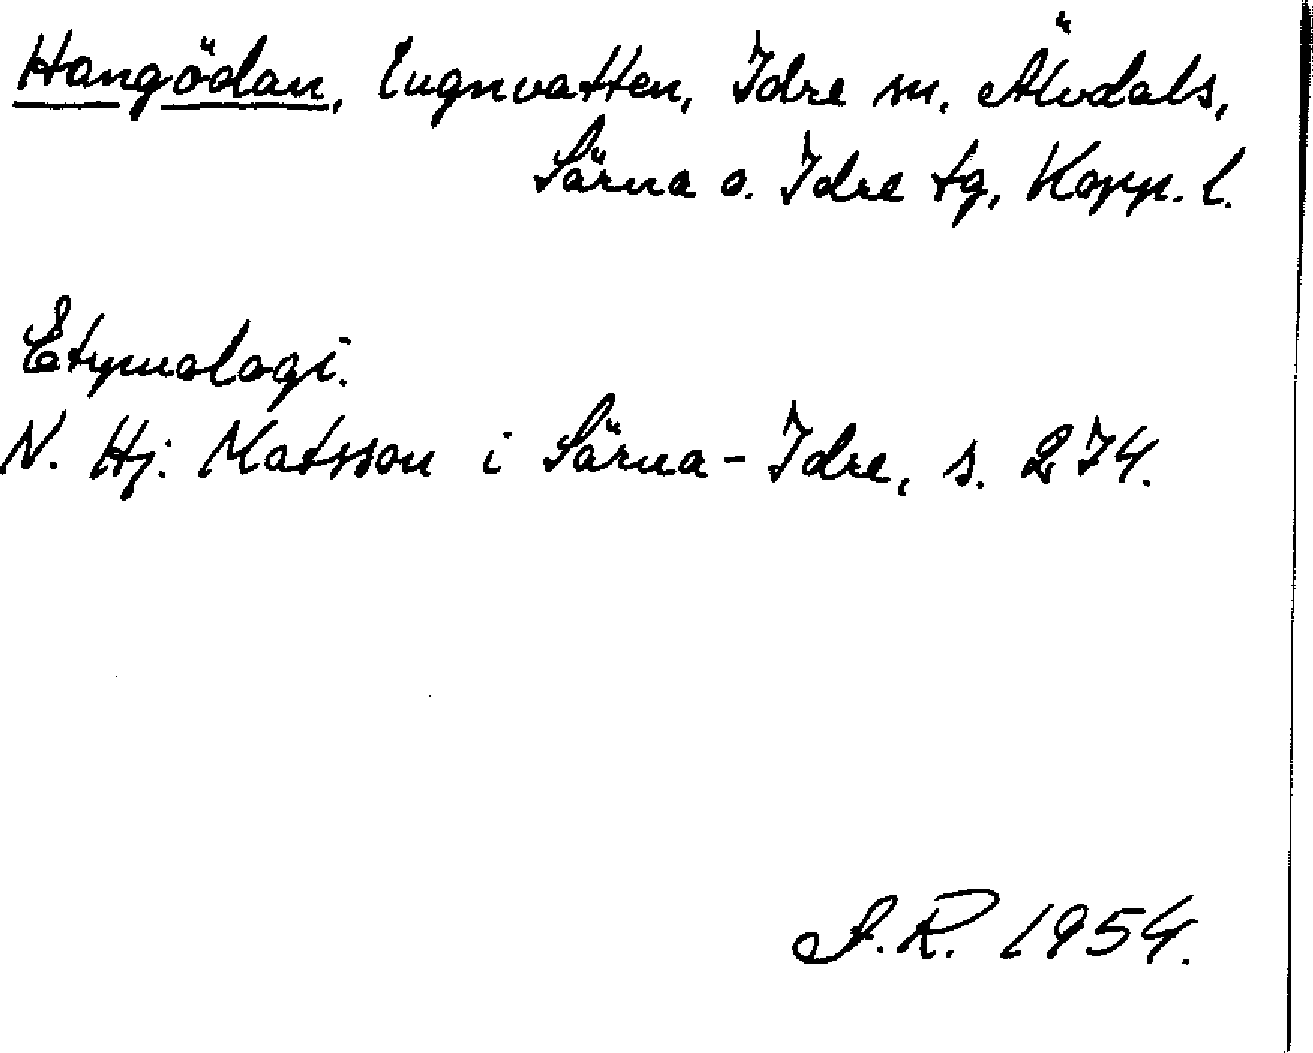 Hangödan, lugnvatten, Idre sn, Älvdals,
Särna o. Idre tg, Kopp. l.
Etymologi.
N. Hj. Matsson i Särna-Idre, s. 274.
A.R. 1954.